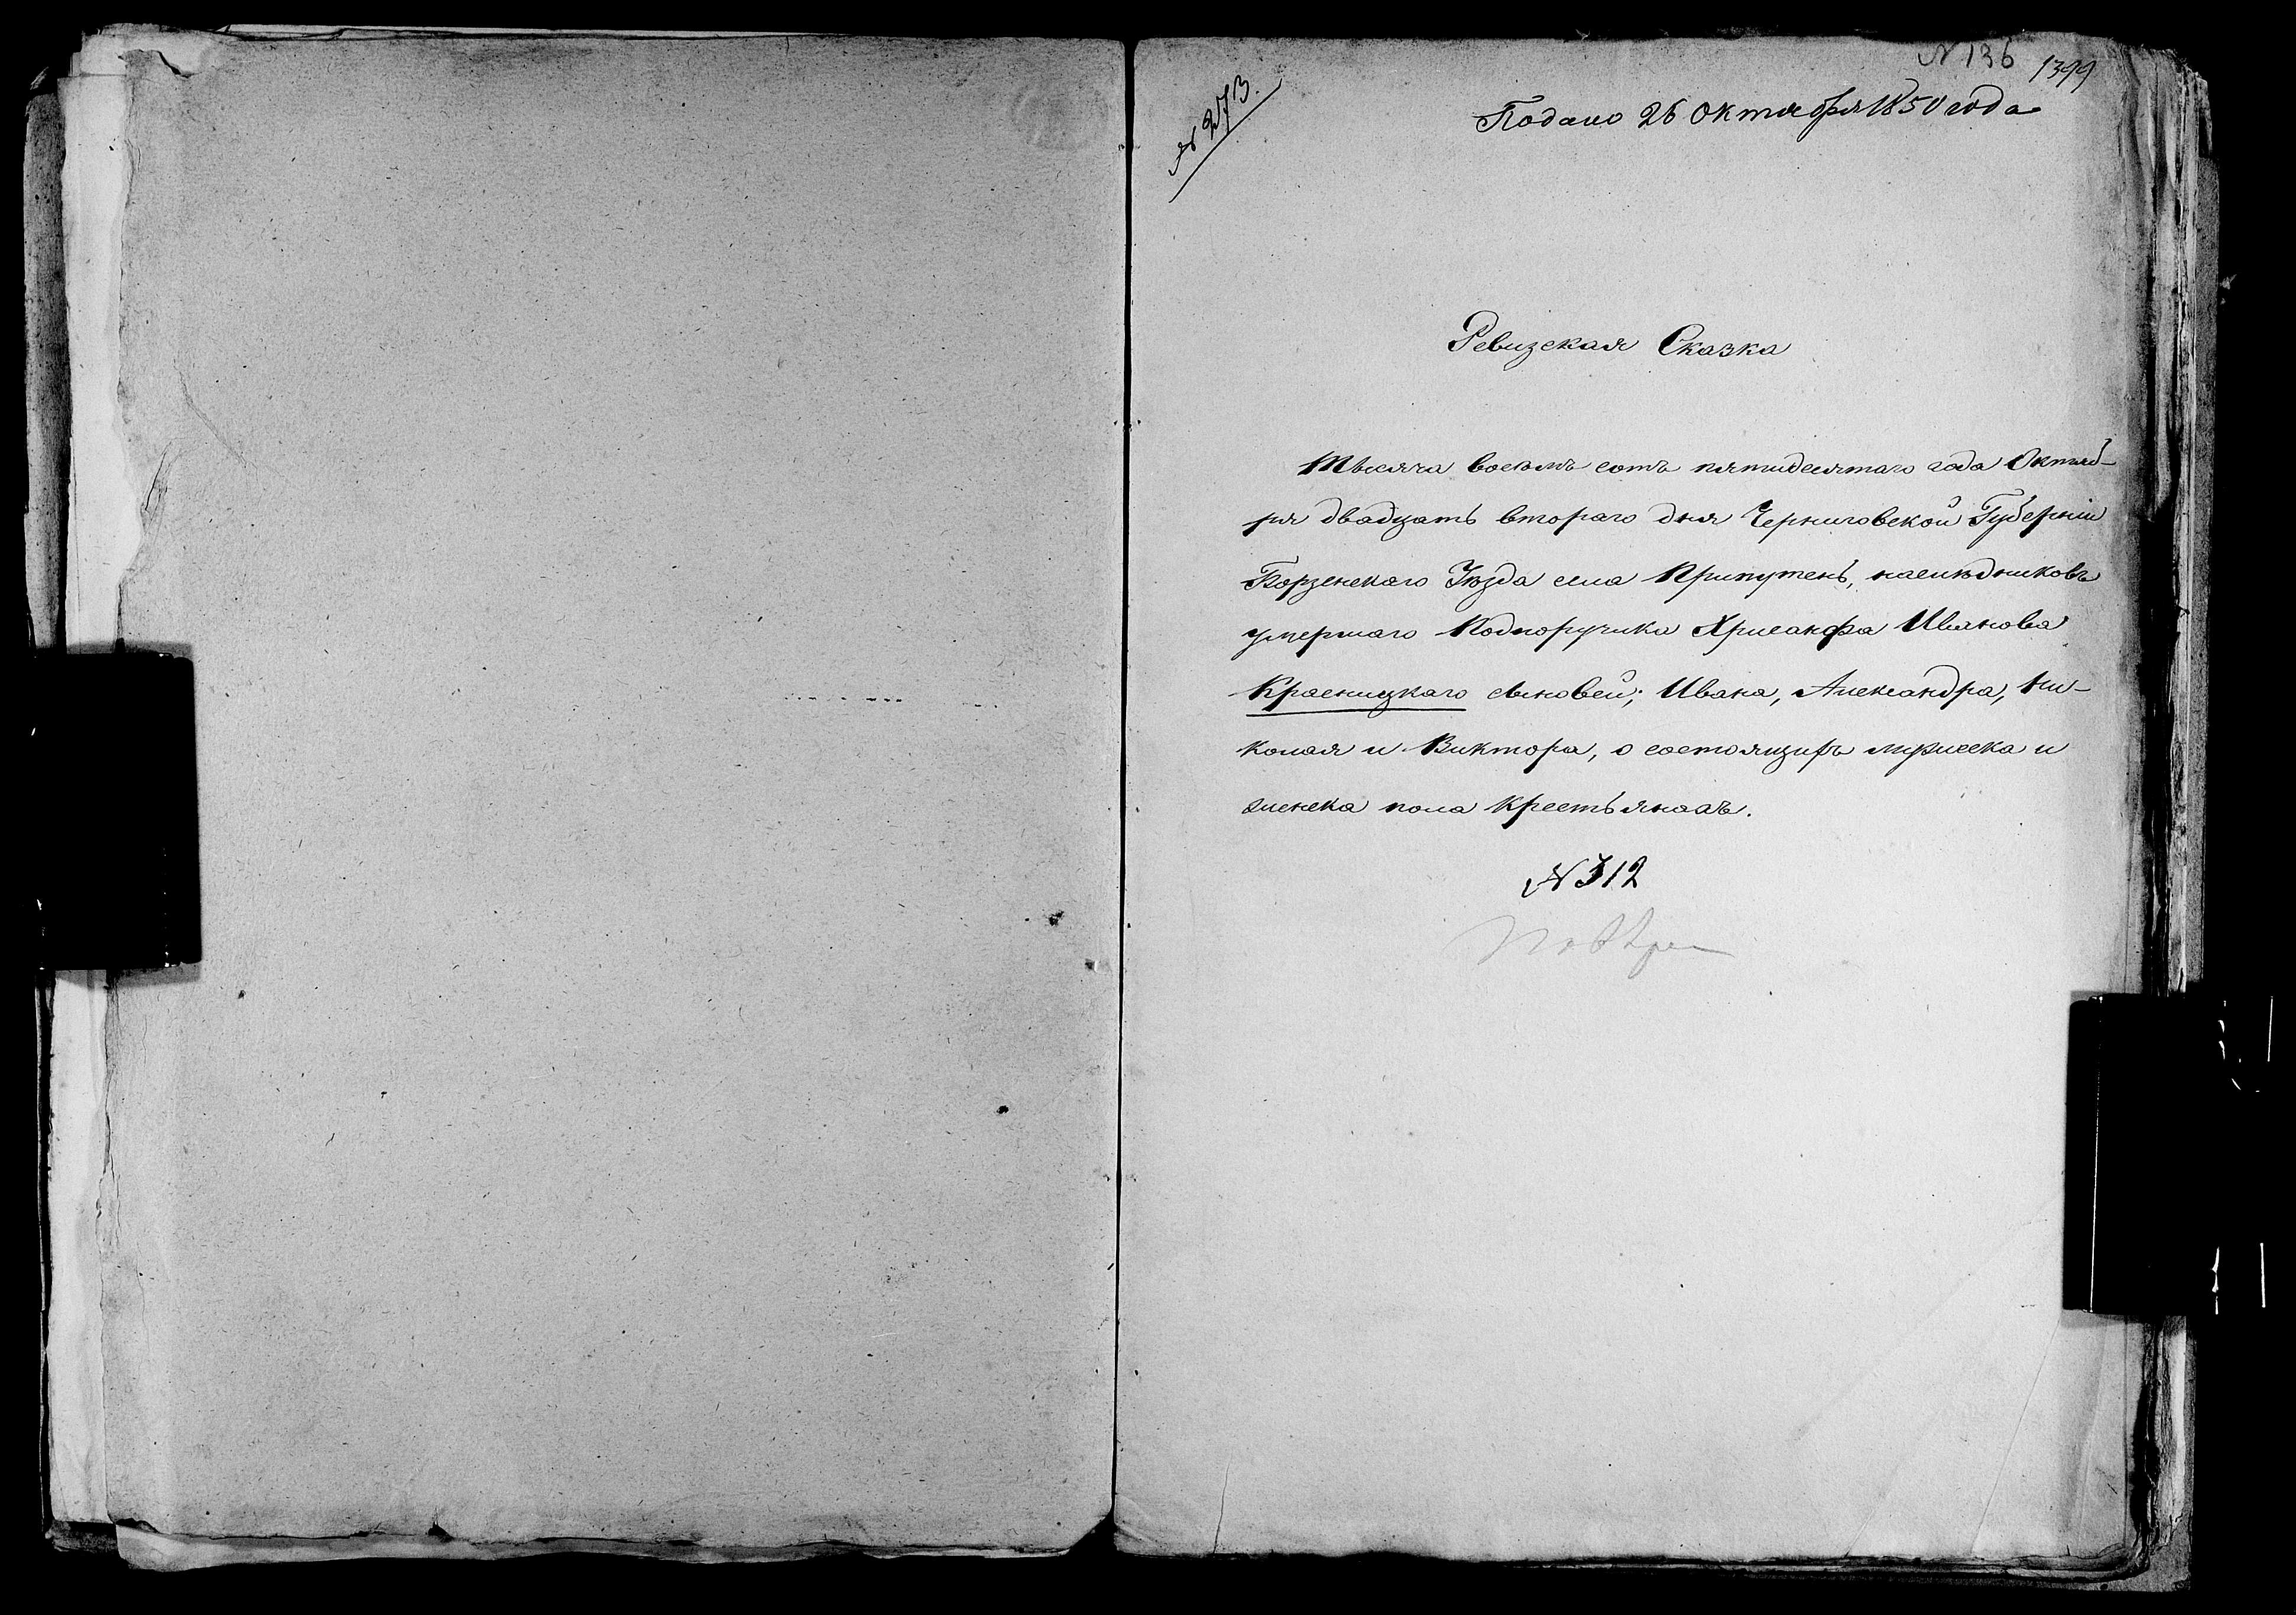 N 136
1399
N 273.
Подано 26 Октября 1850 года
Ревизская Сказка
Тысяча восемь сотъ пятидесятаго года Октяб-
ря двадцать втораго дня Черниговской Губерніи
Борзенскаго Уѣзда села Припутень, наслѣдниковъ
умершаго Подпоручика Хрисанфа Иванова
Красницкаго сыновей; Ивана, Александра, Ни-
колая и Виктора, о состоящихъ мужеска и
женска пола крестьянахъ.
N 312